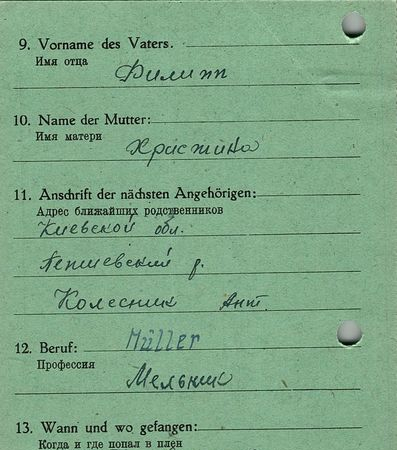 9. Vorname des Vaters.
Имя отца
Филипп
10. Name der Mutter:
Имя матери
Христина
11. Anschrift der nächsten Angehörigen:
Адрес ближайших родственников
Киевской обл.
р.
Колесник Ант.
12. Beruf: Müller
Профессия
Мельник
13. Wann und wo gefangen:
Когда и где попал в плен